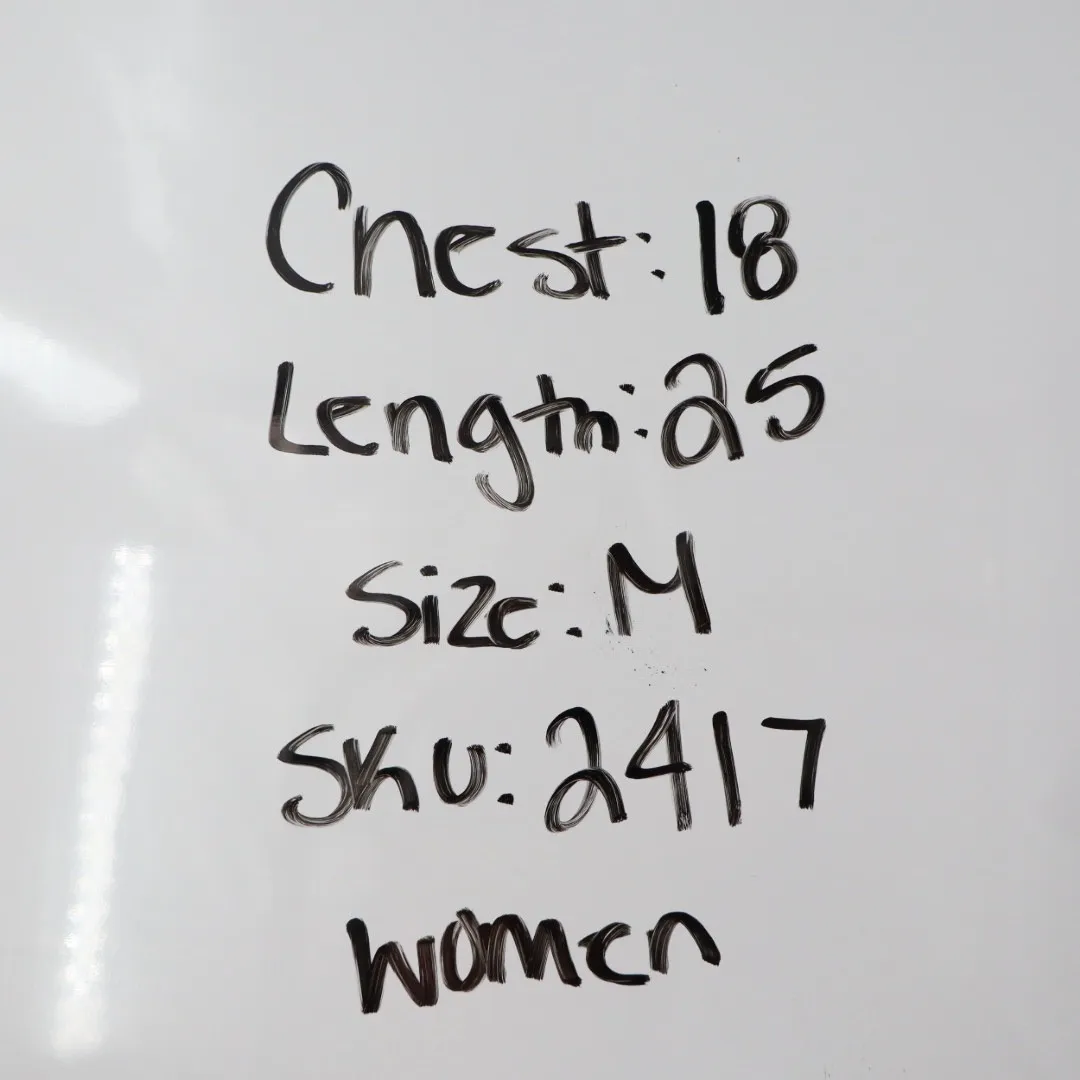 Chest: 18
Length: 25
Size: M
SKU: 2417
Women